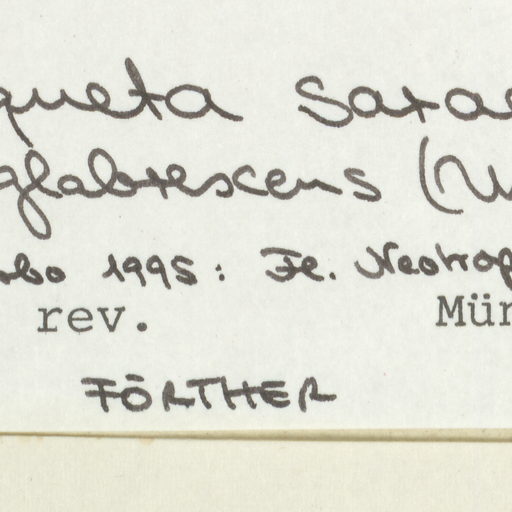 queta sarae
glabrescens (W
bo 1995: Fl. Neotrop
rev. Mün
FÖRTHER